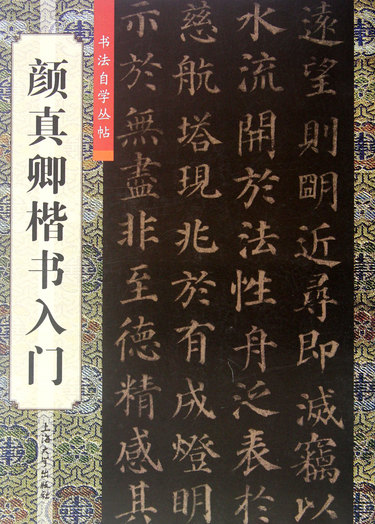 颜真卿楷书入门
上海大学出版社
书法自学丛帖
遠望則明近尋即滅竊以
水流開於法性舟泛表於
慈航塔現兆於有成燈明
示於無盡非至德精感其